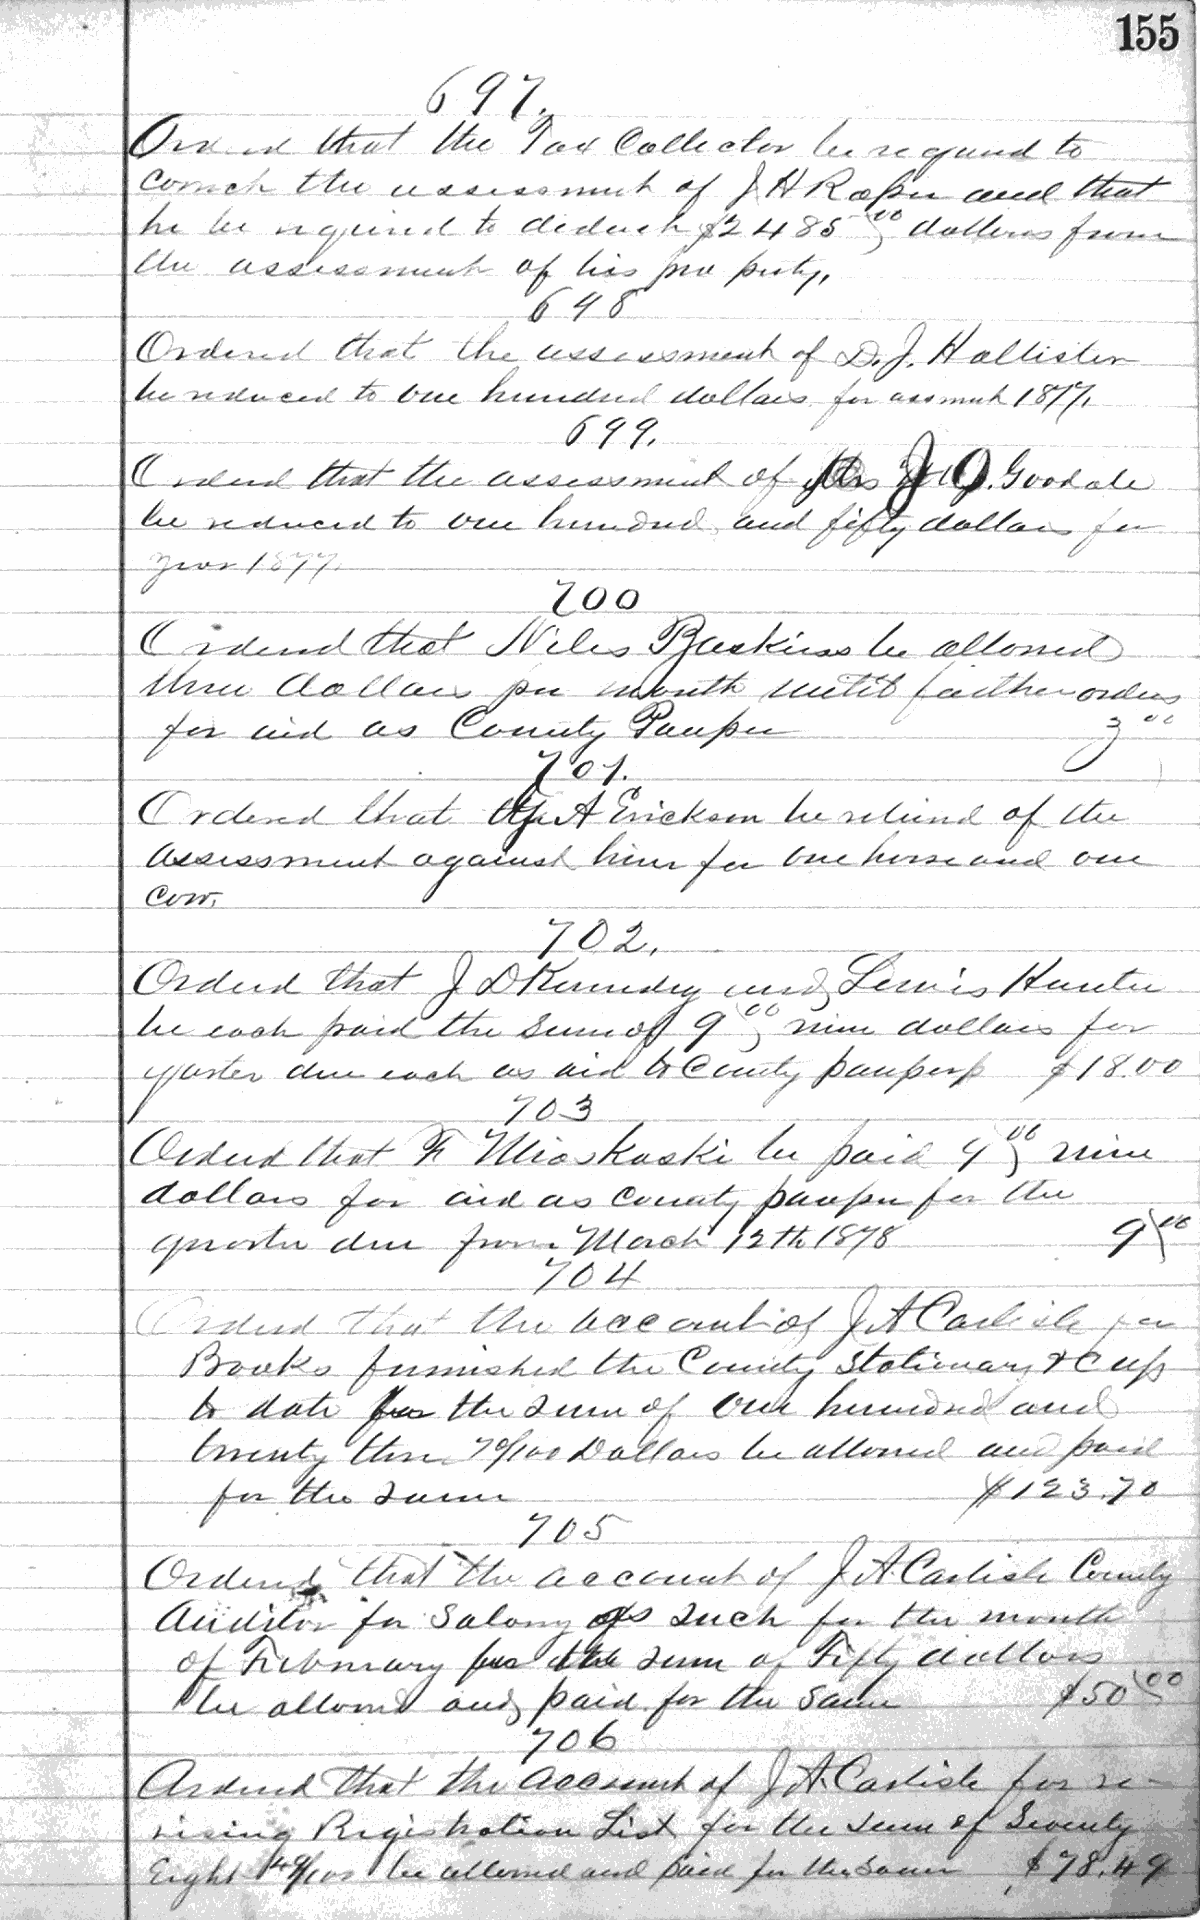 155
697.
Ordered that the Tax Collector be required to
correct the assessment of J H Roper and that
he be required to deduct $2485 00 dollars from
the assessment of his property,
648
Ordered that the assessment of D. J. Hollister
be reduced to one hundred dollars for assmnt 1877.
699.
Ordered that the assessment of J O. Goodale
be reduced to one hundred and fifty dollars for
year 1877.
700
Ordered that Niles be allowed
three dollars per month until further orders
for aid as County Pauper 3 00
701.
Ordered that A Erickson be relieved of the
assessment against him for one horse and one
cow.
702.
Ordered that J D Kennedy and Lewis Hunter
be each paid the sum of 9 00 nine dollars for
quarter due each as aid to County paupers $18.00
703
Ordered that F Mioskoski be paid 9 00 nine
dollars for aid as County pauper for the
quarter due from March 12th 1878 9 00
704
Ordered that the account of J A Carlisle for
Books furnished the County Stationary &
to date for the sum of one hundred and
twenty three 70/100 Dollars be allowed and paid
for the same $123.70
705
Ordered that the account of J A Carlisle County
Auditor for Salary as such for the month
of February for the sum of Fifty dollars
be allowed and paid for the same $50 00
706
Ordered that the account of J A. Carlisle for re-
vising Registration List for the sum of Seventy
Eight 49/100 be allowed and paid for the same $78.49